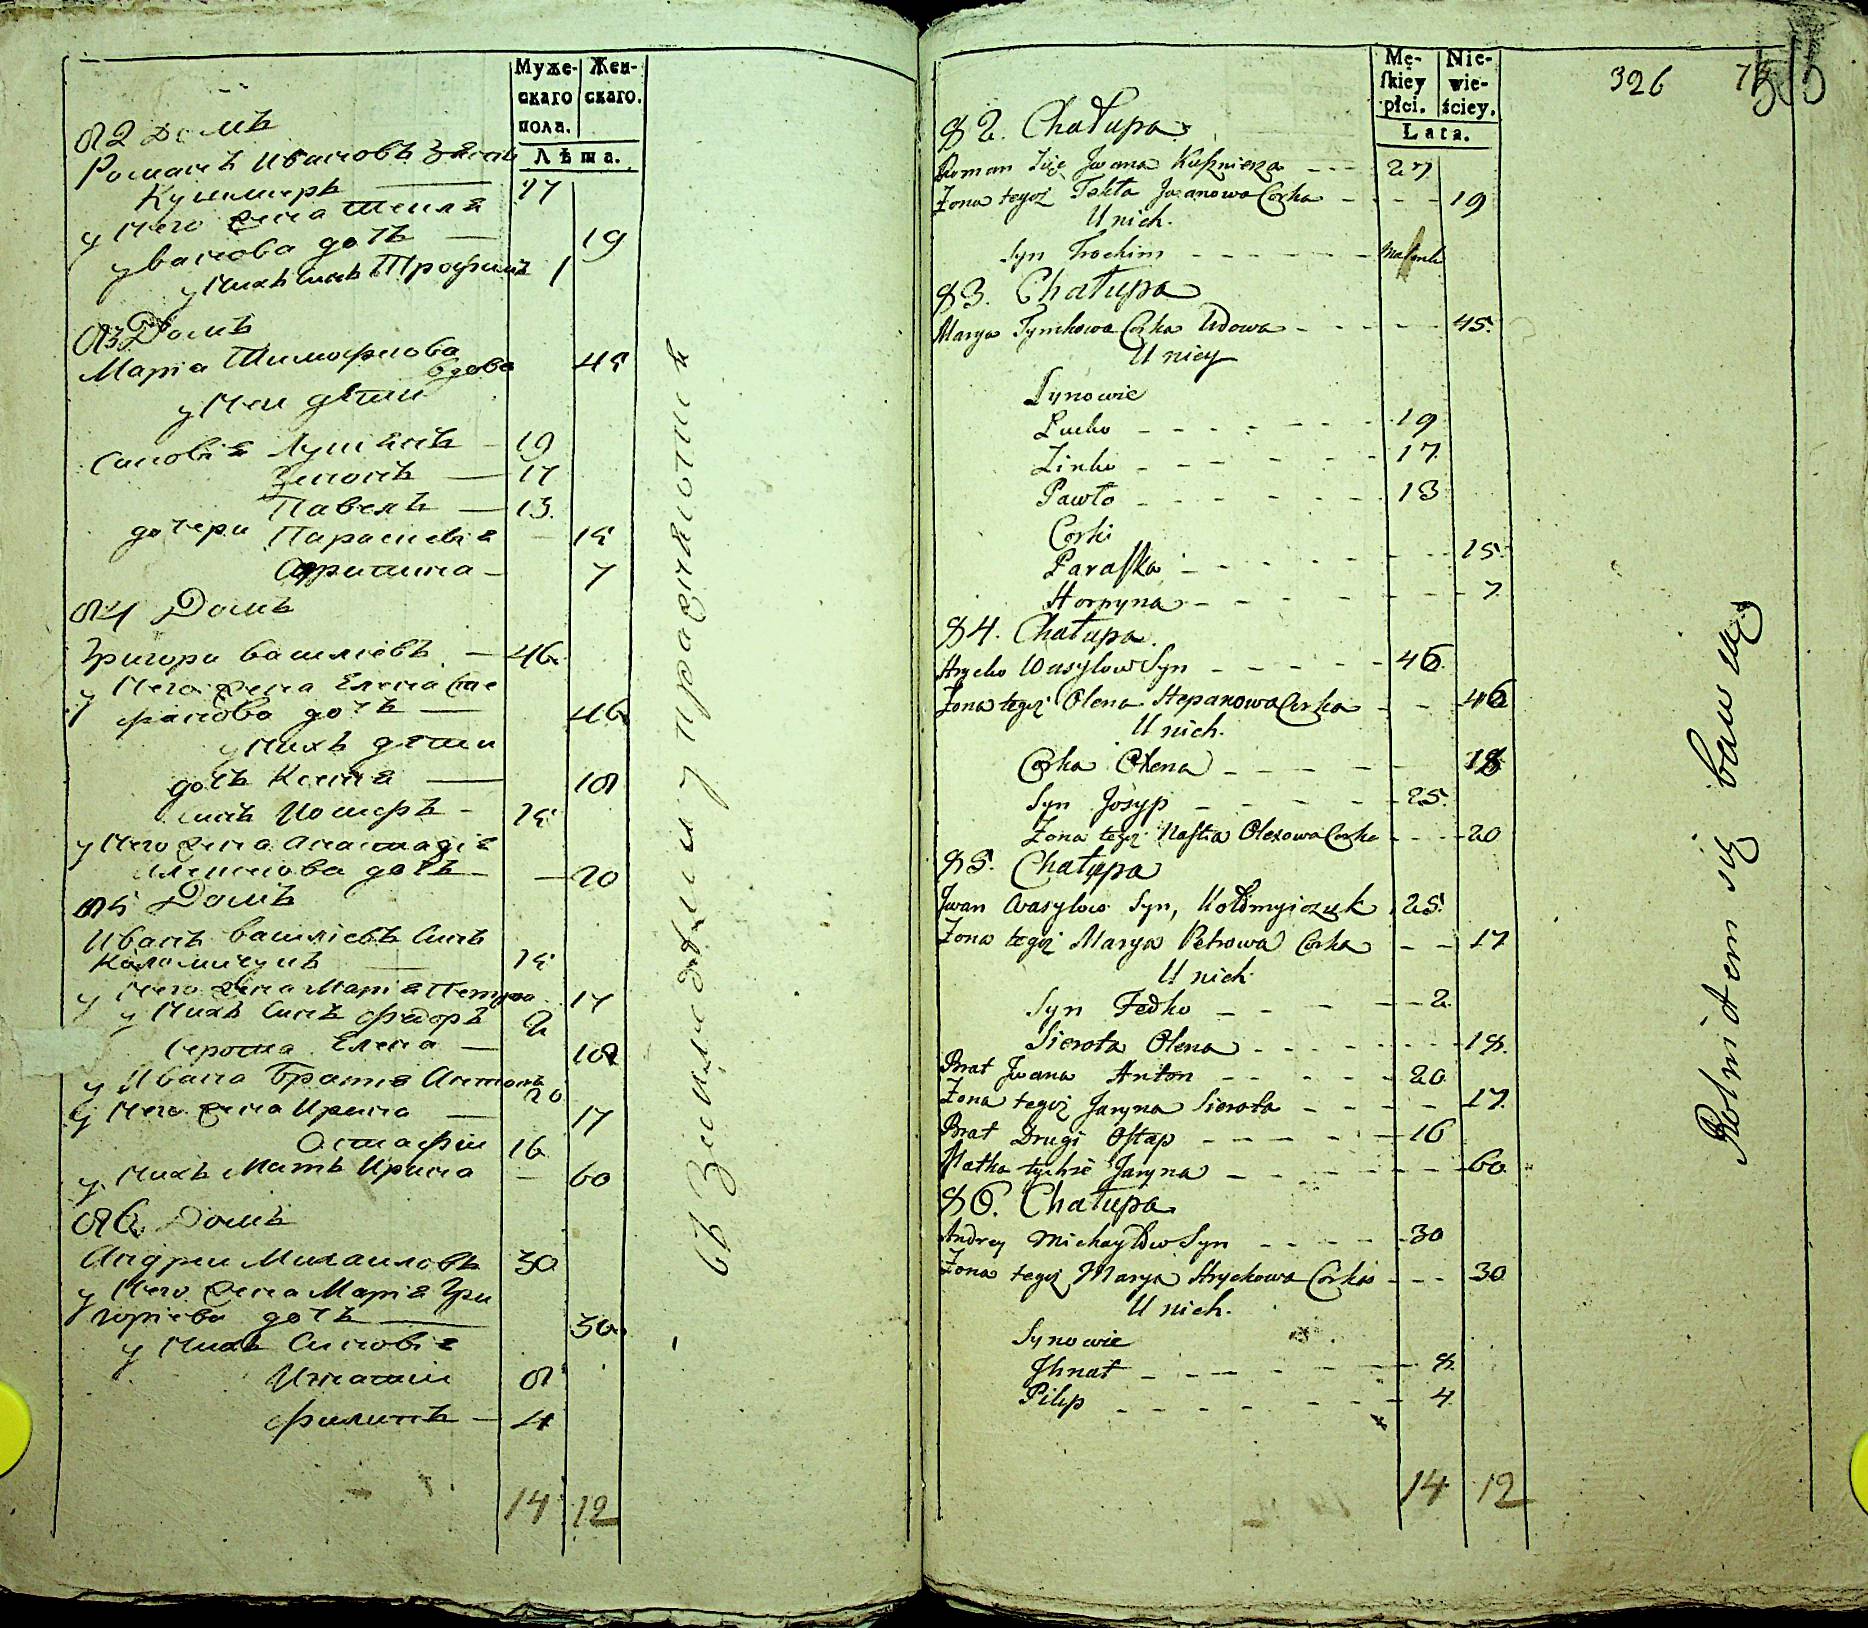 Муже-
скаго
пола.
Жен-
скаго.
Лѣта.
82 Домъ
Романъ Ивановъ зять
Кушниръ — 27
у него жена Текля
Иванова дочь — 19
у нихъ сынъ Трофимъ 1
83 Домъ
Марiа Тимофеова
вдова 45
у неи дѣти
Синовiя Лукянъ — 19
Зинонъ — 17
Павелъ — 13
дочери Параскевiя — 15
Агрипина — 7
84 Домъ
Григори Василiевъ — 46
у него жена Елена Сте
фанова дочь — 46
у нихъ дѣти
дочь Ксения — 18
синъ Иосифъ — 25
у него жена Анастасiя
дочь — 20
85 Домъ
Иванъ Василiевъ Синъ
Коломичукъ — 25
у него жена Марiя Петрова 17
у нихъ Синъ Федоръ 2
сирота Елена — 18
у Ивана братия Антонъ 20
у него жена Ирина — 17
Остафiи 16
у нихъ Мать Ирина — 60
86 Домъ
Андреи Михаиловъ 30
у него жена Марiя Гри
горiева дочь — 30
у нихъ Синовiя
Игнатiи 8
Филипъ — 4
14 12
въ земледѣлiи упражняются
Mę-
ſkiey
płci.
Nie-
wie-
ściey.
Lata.
326
82. Chałupa
Roman Zięć Jwana Kuſznierza - - - 27
Zona tegoż Tekla Jwanowa Corka - - - - 19
U nich.
Syn Trochim - - - - - -
83. Chałupa
Marya Tymkowa Corka Wdowa - - - - - 45.
U niey
Synowie
Lucko - - - - - - - 19
Zinko - - - - - - 17
Pawło - - - - - - 13
Corki
Paraſka - - - - - - - - 15.
Horpyna - - - - - - - 7
84. Chałupa
Hrycko Wasylow Syn - - - - - 46
Zona tegoż Olena Stepanowa Corka - - 46
U nich.
Corka Olena - - - - - 18
Syn Josyp - - - - - 25.
Zona tegoż Naſtia Olexowa Corka - - - - 20
85. Chałupa
Jwan Wasylow Syn, Kołomyiczuk 25.
Zona tegoż Marya Petrowa Corka - - 17
U nich
Syn Fedko - - - - - 2.
Sierota Olena - - - - - - - - 18.
Brat Jwana Anton - - - - - 20
Zona tegoż Jaryna Sierota - - - - - 17.
Brat Drugi Oſtap - - - - - 16
Matka tychże Jaryna - - - - - - - 60
86. Chałupa
Andrey Michayłow Syn - - - - - 30
Zona tegoż Marya Hryckowa Corka - - - 30
U nich.
Synowie
Jhnat - - - - - - - 8.
Pilip - - - - - - - 4
14 12
Rolnictwem się bawią